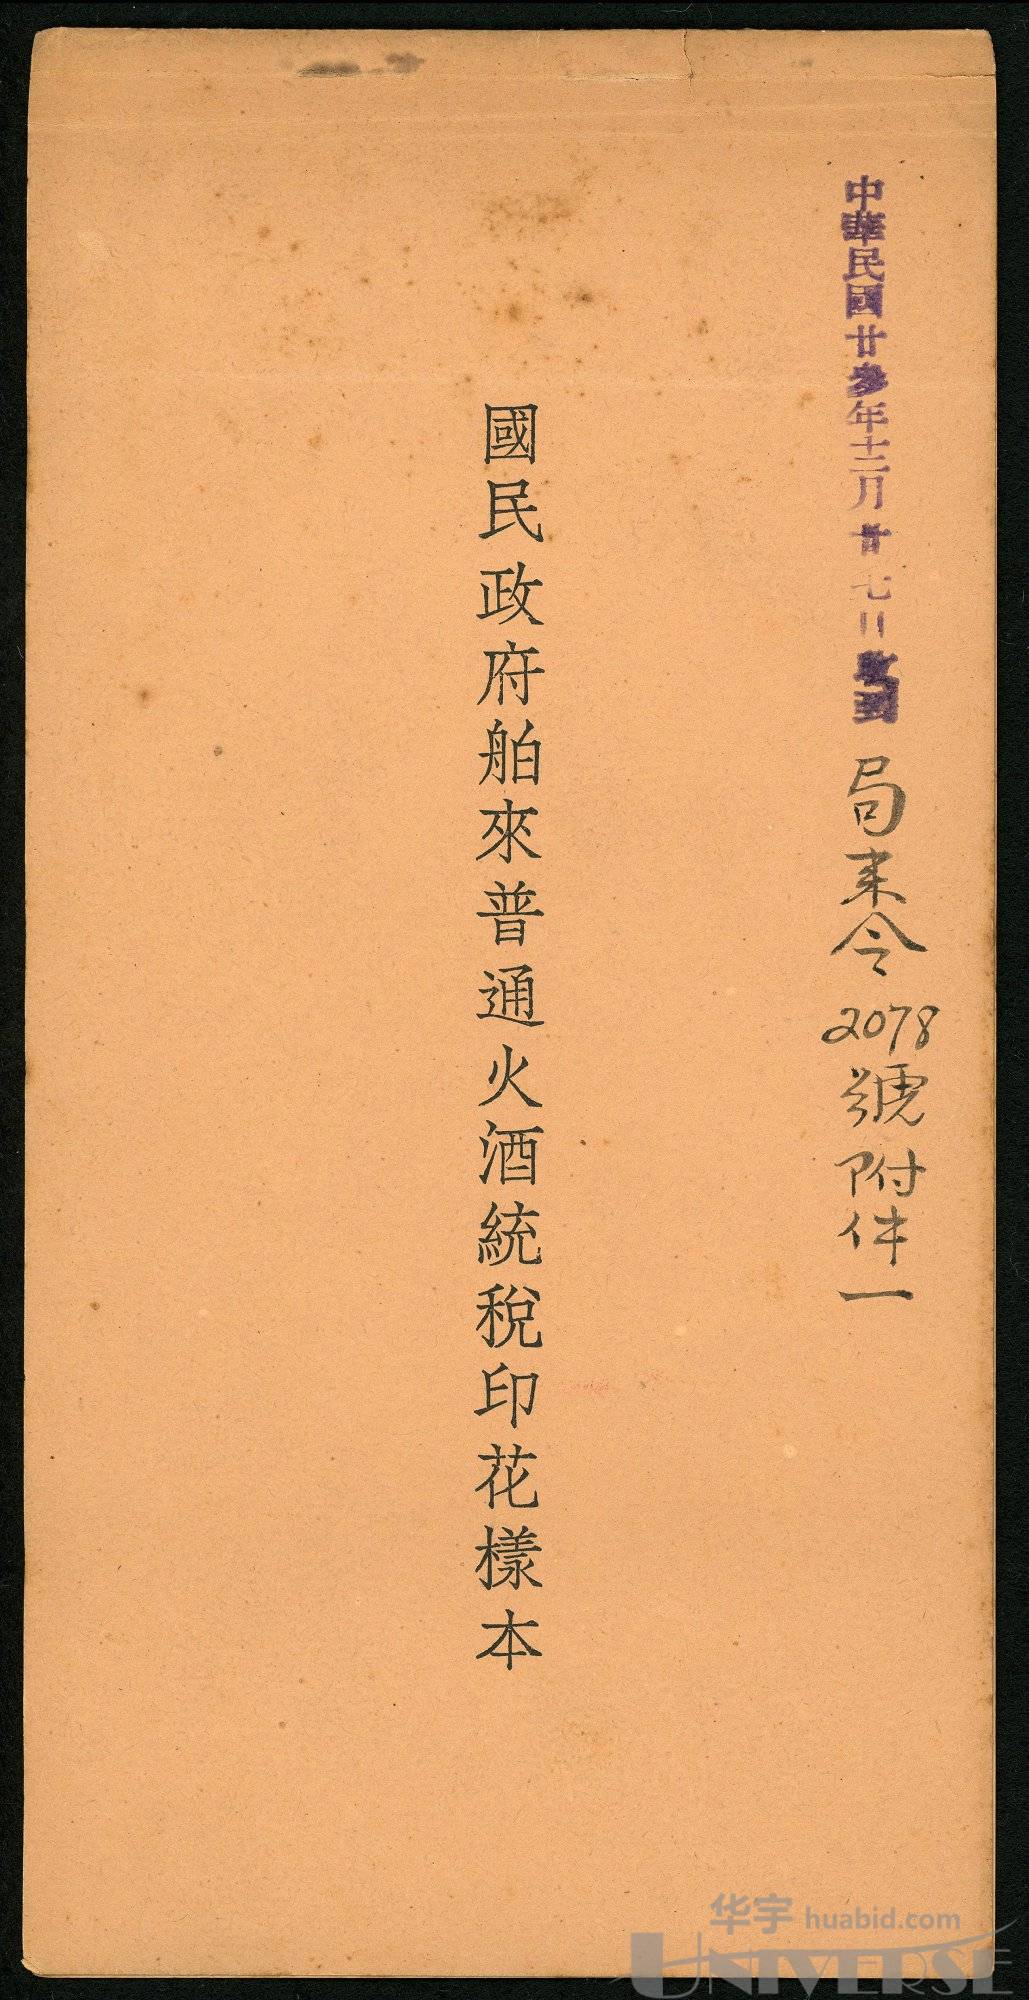 中華民國廿叁年十二月廿七日收到
局來令2078號附件一
國民政府舶來普通火酒統稅印花樣本
华宇 huabid.com
UNIVERSE